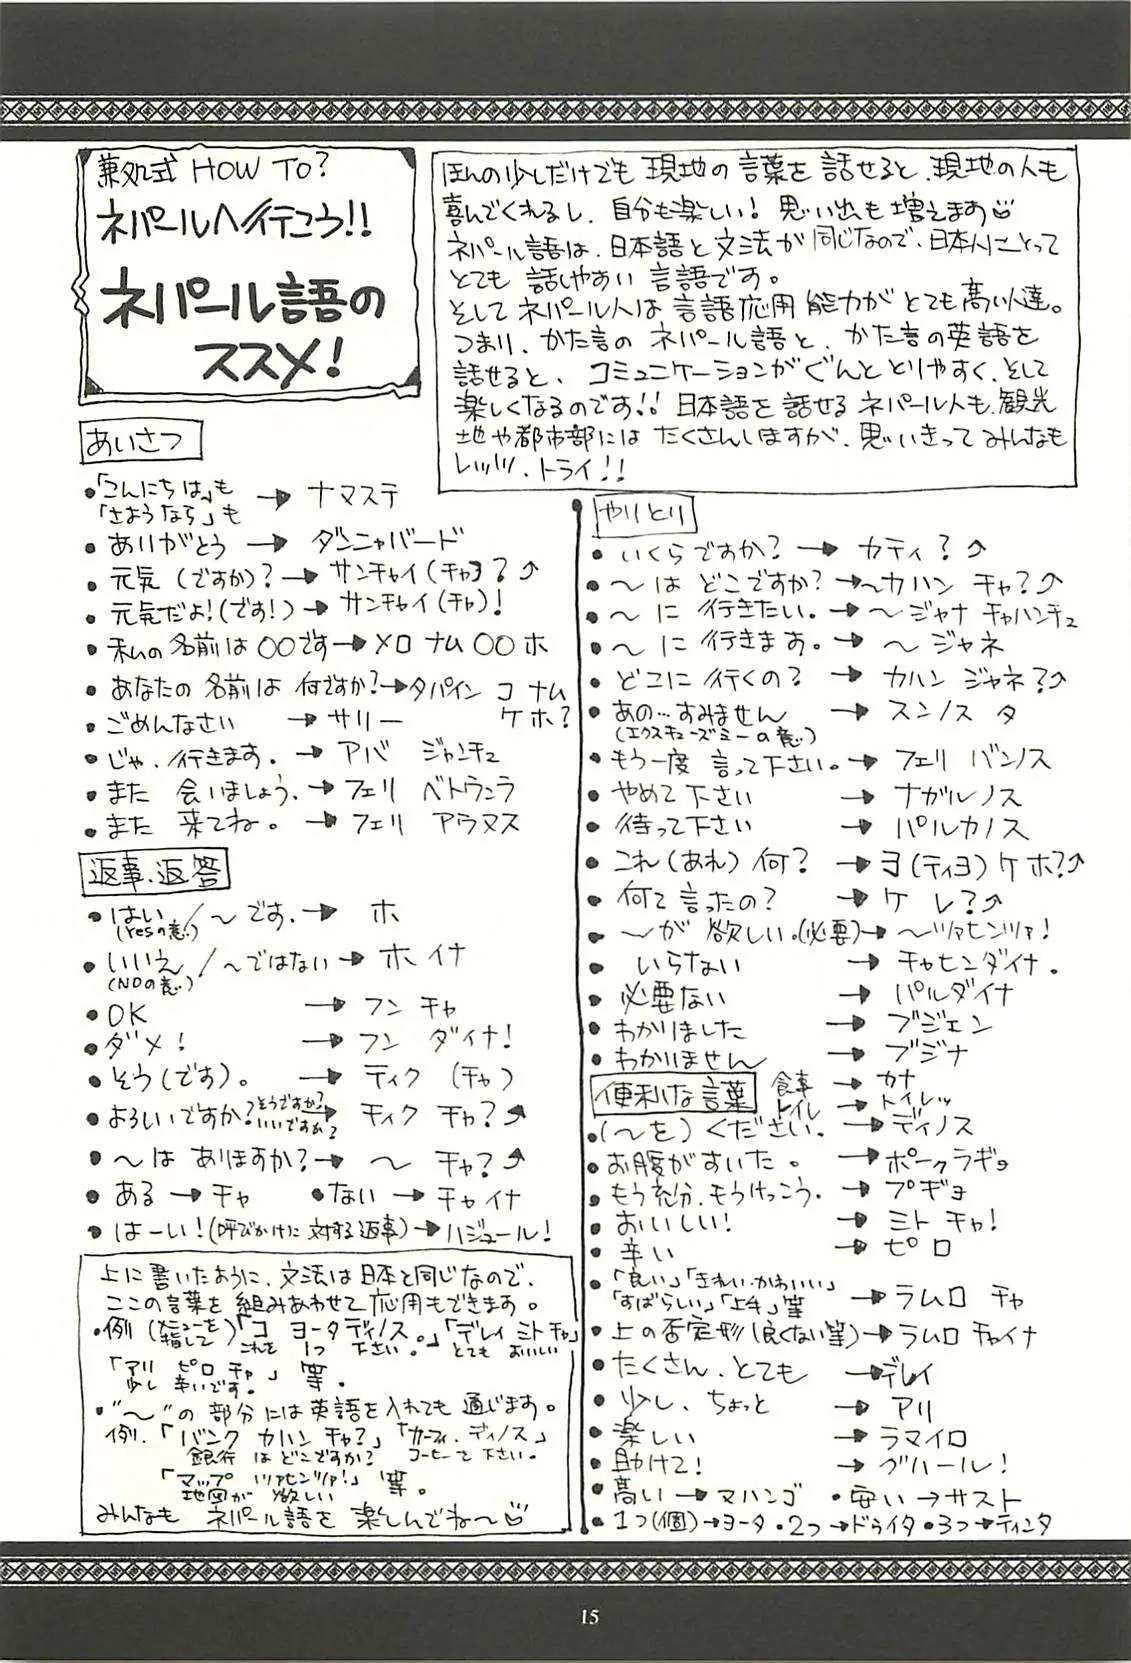 兼処式 HOW TO?
ネパールへ行こう!!
ネパール語の
ススメ!
ほんの少しだけでも現地の言葉を話せると、現地の人も
喜んでくれるし、自分も楽しい! 思い出も増えます
ネパール語は、日本語と文法が同じなので、日本人にとって
とても話しやすい言語です。
そしてネパール人は言語応用能力がとても高い人達。
つまり、かた言のネパール語と、かた言の英語を
話せると、コミュニケーションがぐんととりやすく、そして
楽しくなるのです!! 日本語を話せるネパール人も、観光
地や都市部にはたくさんいますが、思いきってみんなも
レッツ、トライ!!
あいさつ
●「こんにちは」も
「さようなら」も → ナマステ
●ありがとう → ダンニャバード
●元気(ですか)? → サンチャイ(チャ)?↗
●元気だよ!(です!) → サンチャイ(チャ)!
●私の名前は○○です → メロ ナム○○ホ
●あなたの名前は何ですか? → タパイン コ ナム
ケホ?
●ごめんなさい → サリー
●じゃ、行きます。 → アバ ジャンチュ
●また会いましょう。 → フェリ ベトウンラ
●また来てね。 → フェリ アウヌス
返事、返答
●はい/~です。 → ホ
(Yesの意)
●いいえ/~ではない → ホイナ
(NOの意)
●OK → フン チャ
●ダメ! → フン ダイナ!
●そう(です)。 → ティク (チャ)
●よろしいですか? そうですか? いいですか? → ティク チャ?↗
●~はありますか? → ~ チャ?↗
●ある → チャ ●ない → チャイナ
●はーい!(呼びかけに対する返事) → ハジュール!
上に書いたように、文法は日本と同じなので、
ここの言葉を組みあわせて応用もできます。
●例(メニューを指して)「コ ヨータ ディノス。」「デレイ ミトチャ」
これを 1つ 下さい。 とても おいしい
「アリ ピロ チャ」等。
少し 辛いです。
●"~"の部分には英語を入れても通じます。
例.「バンク カハン チャ?」「カーフィ.ディノス」
銀行 は どこですか? コーヒーて 下さい。
「マップ ツァヒンツァ!」等。
地図が 欲しい
みんなも ネパール語を楽しんでね~
やりとり
●いくらですか? → カティ?↗
●~はどこですか? → ~カハン チャ?↗
●~に行きたい。 → ~ジャナ チャハンチュ
●~に行きます。 → ~ジャネ
●どこに行くの? → カハン ジャネ?↗
●あの…すみません → スンノス タ
(エクスキューズミーの意)
●もう一度言って下さい。 → フェリ バンノス
●やめて下さい → ナガルノス
●待って下さい → パルカノス
●これ(あれ)何? → ヨ(ティヨ)ケホ?↗
●何て言ったの? → ケ レ?↗
●~が欲しい。(必要) → ~ツァヒンツァ!
●いらない → チャヒンダイナ。
●必要ない → パルダイナ
●わかりました → ブジェン
●わかりません → ブジナ
便利な言葉
食事 → カナ
トイレ → トイレッ
●(~を)ください。 → ディノス
●お腹がすいた。 → ポークラギョ
●もう充分、もうけっこう。 → プギョ
●おいしい! → ミト チャ!
●辛い → ピロ
●「良い」「きれい・かわいい」
「すばらしい」「上手」等 → ラムロ チャ
●上の否定形(良くない等) → ラムロ チャイナ
●たくさん、とても → デレイ
●少し、ちょっと → アリ
●楽しい → ラマイロ
●助けて! → グハール!
●高い → マハンゴ ●安い → サスト
●1つ(個) → ヨータ ●2つ → ドゥイタ ●3つ → ティンタ
15